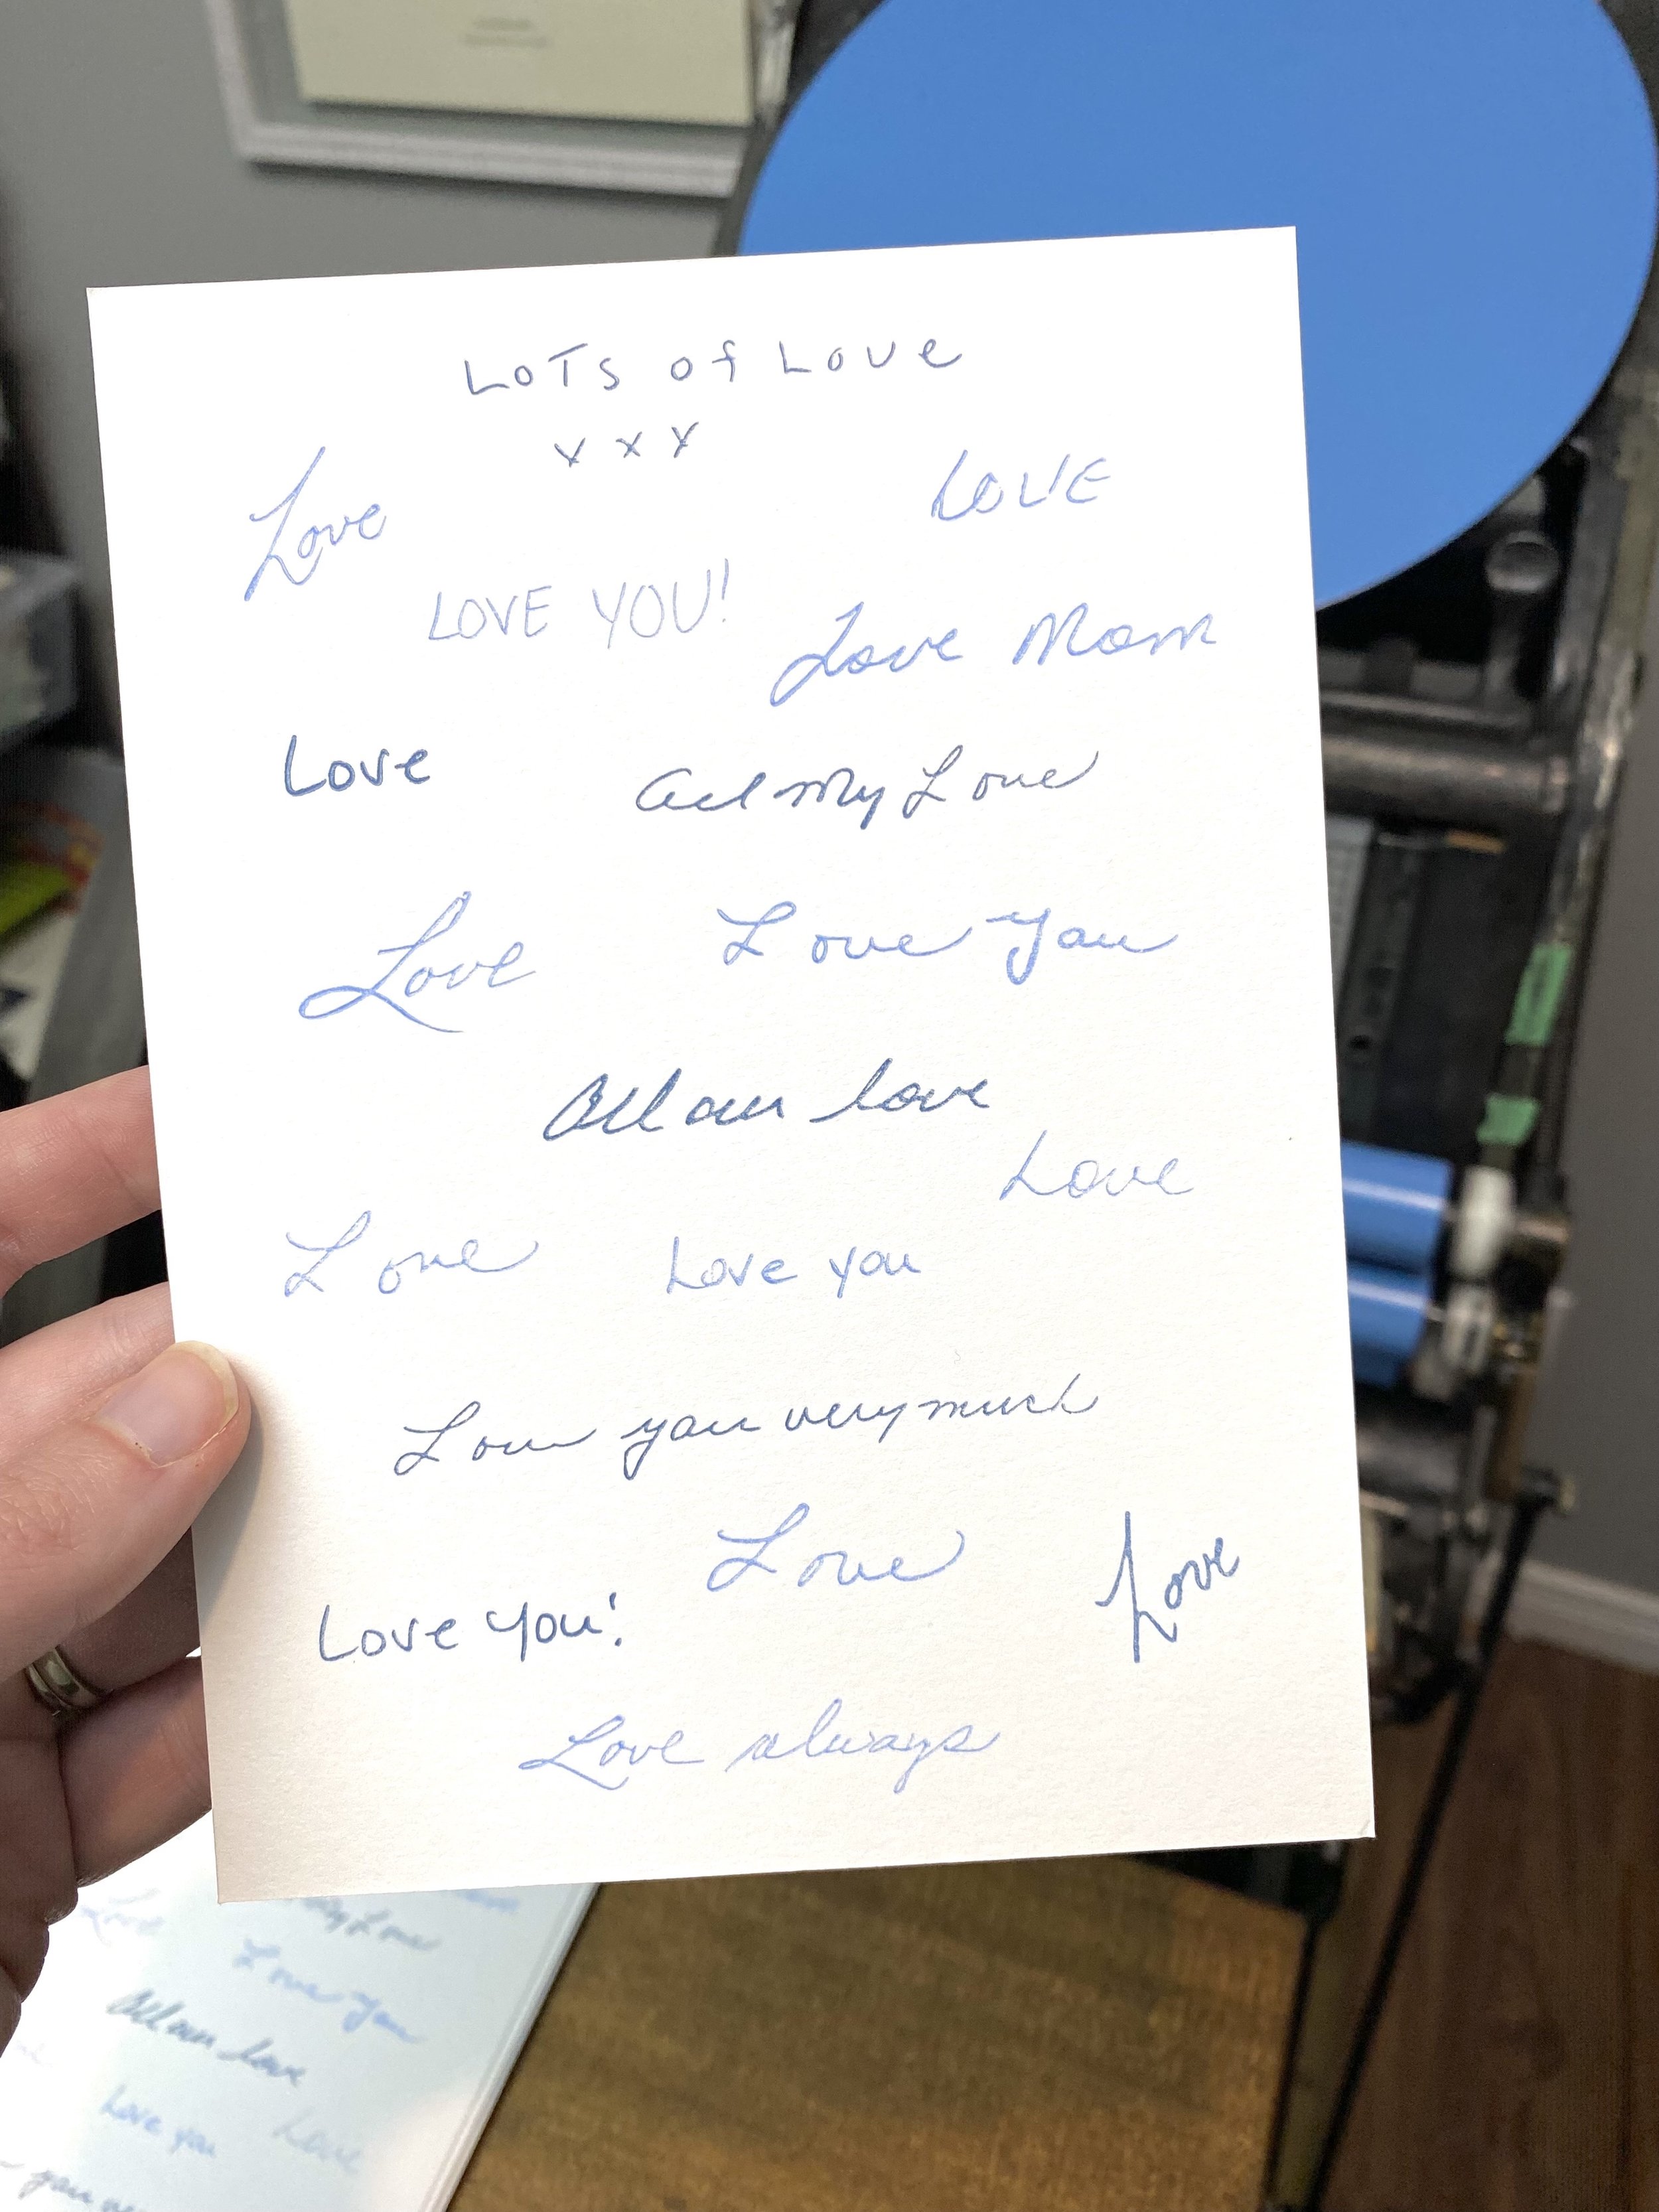 LOTS of LOVE
x x x
Love
LOVE
LOVE YOU!
Love Mom
Love
All My Love
Love
Love You
All our love
Love
Love
Love you
Love you very much
Love
Love
Love you!
Love always
Love
My Love
Love You
All our love
Love you
Love
you ve